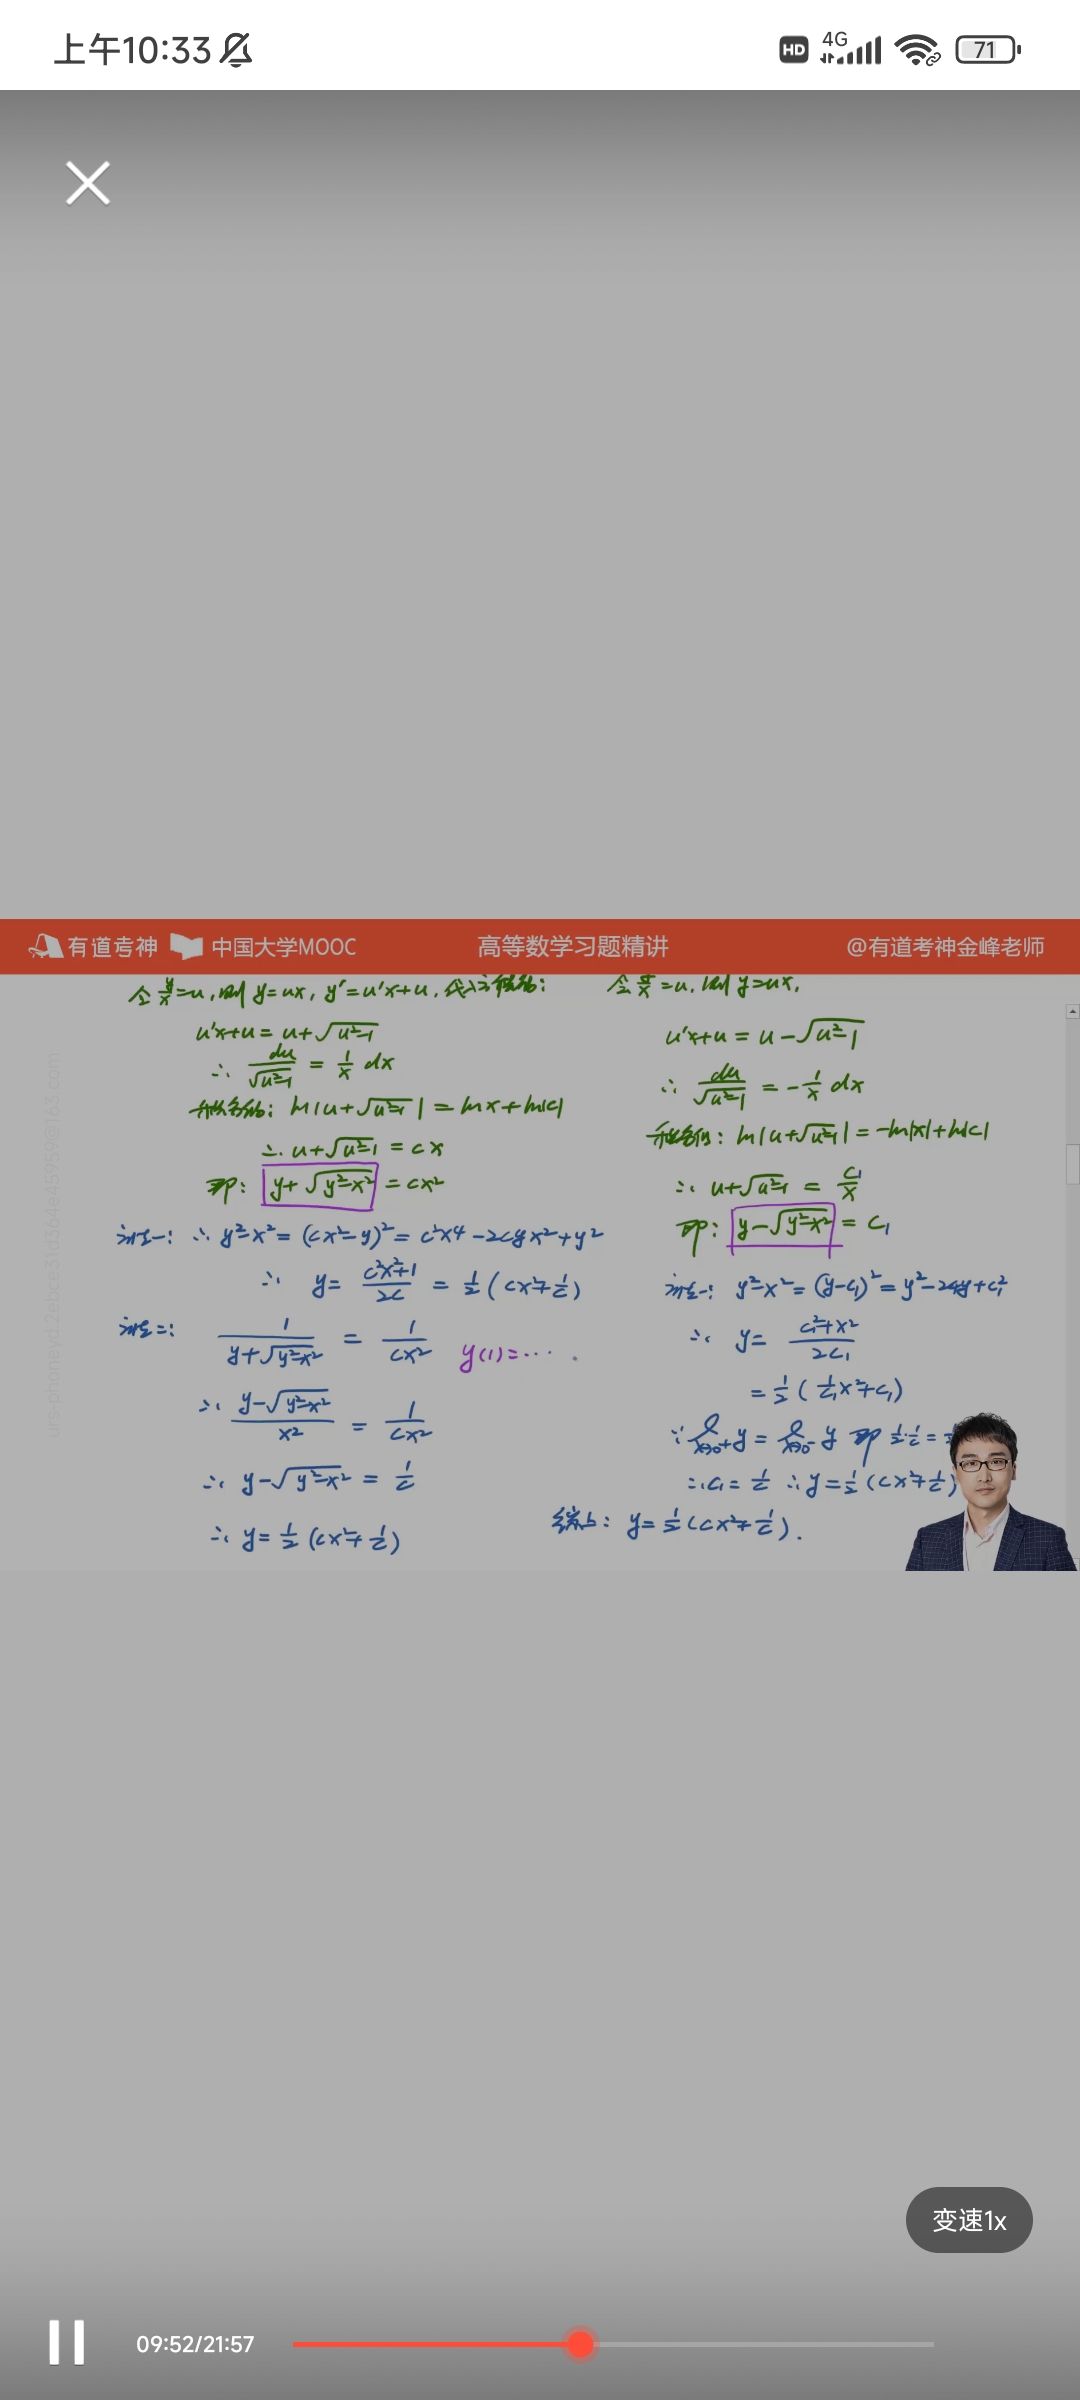 上午10:33 HD 4G 71
有道考神 中国大学MOOC 高等数学习题精讲 @有道考神金峰老师
令 y/x=u,则 y=ux, y'=u'x+u,代入方程得:
u'x+u=u+√(u²-1)
∴ du/√(u²-1) = 1/x dx
两边积分: ln|u+√(u²-1)| = lnx+ln|c|
∴ u+√(u²-1) = cx
即: y+√(y²-x²) = cx²
法一: ∴ y²-x² = (cx²-y)² = c²x⁴-2cyx²+y²
∴ y= (c²x²+1)/2c = 1/2(cx²+1/c)
法二: 1/(y+√(y²-x²)) = 1/cx² y(1)=…
∴ (y-√(y²-x²))/x² = 1/cx²
∴ y-√(y²-x²) = 1/c
∴ y=1/2(cx²+1/c)
令 y/x=u,则 y=ux,
u'x+u=u-√(u²-1)
∴ du/√(u²-1) = -1/x dx
ln|u+√(u²-1)| = -ln|x|+ln|c|
∴ u+√(u²-1) = c₁/x
即: y-√(y²-x²) = c₁
法一: y²-x² = (y-c₁)² = y²-2c₁y+c₁²
∴ y= (c₁²+x²)/2c₁
= 1/2(1/c₁x²+c₁)
∵ x→0⁺ y = x→0⁻ y 即 1/2·1/c =
∴ c₁=1/c ∴ y=1/2(cx²+1/c)
综上: y=1/2(cx²+1/c).
变速1x
09:52/21:57